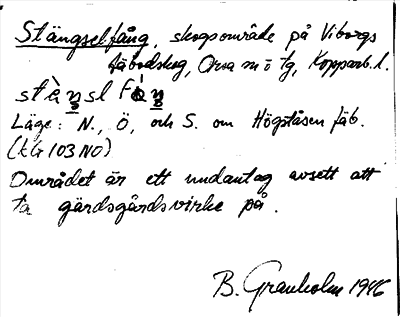 Stängselfång, skogsområde på Viborgs
fäbodskog, Orsa sn o tg, Kopparb. l.
stàŋsl fåŋ
Läge: N., Ö, och S. om Högståsen fäb.
(kbl 103 NO)
Området är ett undantag avsett att
ta gärdsgårdsvirke på.
B. Granholm 1946